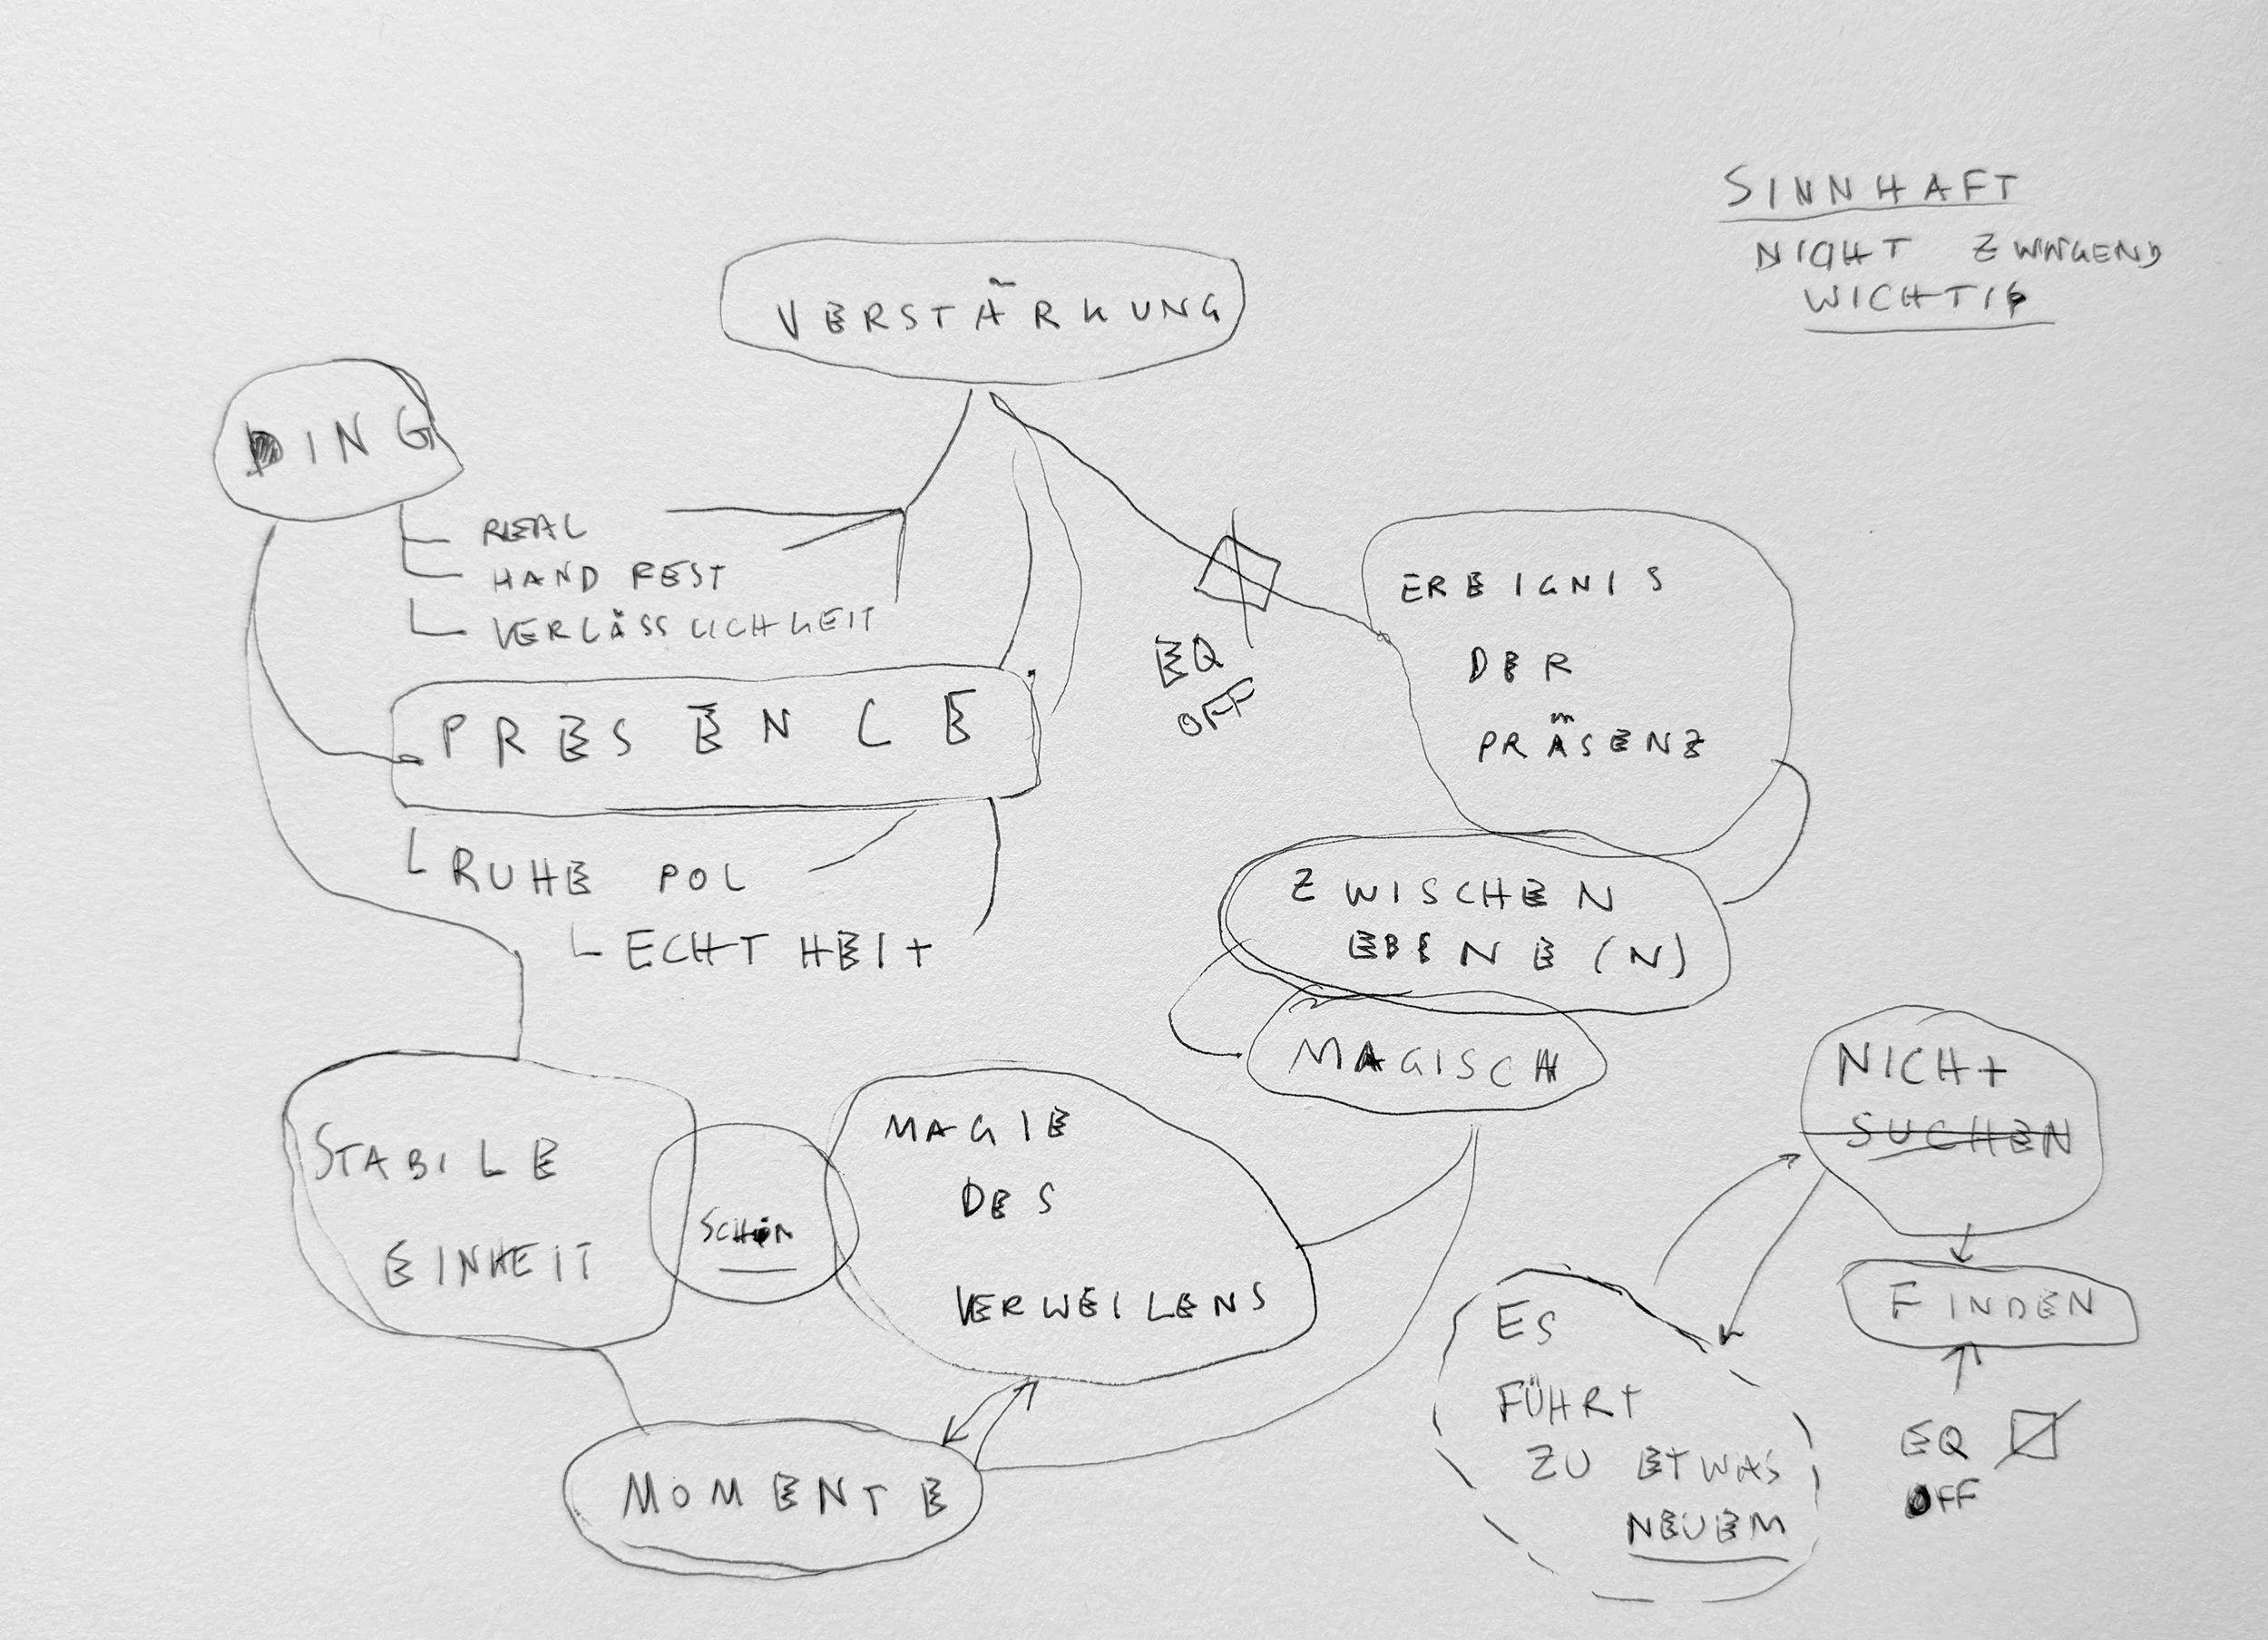 SINNHAFT
NICHT ZWINGEND
WICHTIG
VERSTÄRKUNG
DING
REAL
HAND FEST
VERLÄSSLICHKEIT
EQ
OFF
EREIGNIS
DER
PRÄSENZ
PRESENCE
RUHE POL
ECHTHEIT
ZWISCHEN
EBENE(N)
MAGISCH
STABILE
EINHEIT
SCHÖN
MAGIE
DES
VERWEILENS
MOMENTE
NICHT
SUCHEN
FINDEN
EQ
OFF
ES
FÜHRT
ZU ETWAS
NEUEM